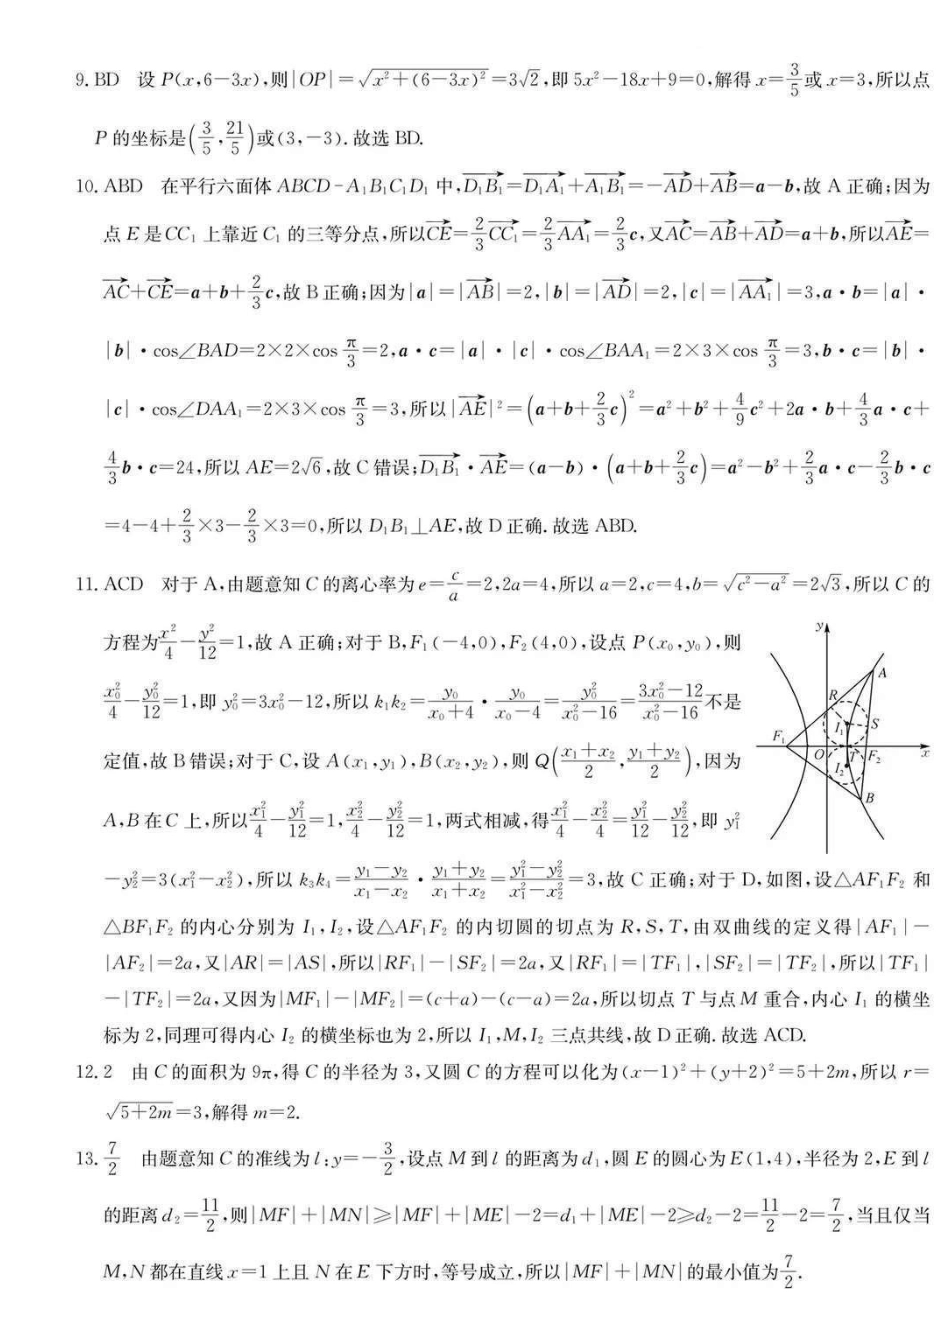 9. BD 设 P(x,6-3x),则|OP|=√(x²+(6-3x)²)=3√2,即 5x²-18x+9=0,解得 x=3/5或 x=3,所以点
P 的坐标是(3/5,21/5)或(3,-3).故选 BD.
10. ABD 在平行六面体 ABCD-A₁B₁C₁D₁ 中,D₁B₁→=D₁A₁→+A₁B₁→=-AD→+AB→=a-b,故 A 正确;因为
点 E 是CC₁ 上靠近 C₁ 的三等分点,所以CE→=2/3CC₁→=2/3AA₁→=2/3c,又AC→=AB→+AD→=a+b,所以AE→=
AC→+CE→=a+b+2/3c,故 B 正确;因为|a|=|AB→|=2,|b|=|AD→|=2,|c|=|AA₁→|=3,a·b=|a|·
|b|·cos∠BAD=2×2×cos π/3=2,a·c=|a|·|c|·cos∠BAA₁=2×3×cos π/3=3,b·c=|b|·
|c|·cos∠DAA₁=2×3×cos π/3=3,所以|AE→|²=(a+b+2/3c)²=a²+b²+4/9c²+2a·b+4/3a·c+
4/3b·c=24,所以 AE=2√6,故 C 错误;D₁B₁→·AE→=(a-b)·(a+b+2/3c)=a²-b²+2/3a·c-2/3b·c
=4-4+2/3×3-2/3×3=0,所以 D₁B₁⊥AE,故 D 正确.故选 ABD.
11. ACD 对于 A,由题意知 C 的离心率为 e=c/a=2,2a=4,所以 a=2,c=4,b=√(c²-a²)=2√3,所以 C 的
方程为x²/4-y²/12=1,故 A 正确;对于 B,F₁(-4,0),F₂(4,0),设点 P(x₀,y₀),则
x₀²/4-y₀²/12=1,即 y₀²=3x₀²-12,所以 k₁k₂=y₀/(x₀+4)·y₀/(x₀-4)=y₀²/(x₀²-16)=(3x₀²-12)/(x₀²-16)不是
定值,故 B 错误;对于 C,设 A(x₁,y₁),B(x₂,y₂),则 Q((x₁+x₂)/2,(y₁+y₂)/2),因为
A,B 在 C 上,所以x₁²/4-y₁²/12=1,x₂²/4-y₂²/12=1,两式相减,得x₁²/4-x₂²/4=y₁²/12-y₂²/12,即 y₁²
y
A
R
I₁
S
F₁
O
T
F₂
x
I₂
B
-y₂²=3(x₁²-x₂²),所以 k₃k₄=(y₁-y₂)/(x₁-x₂)·(y₁+y₂)/(x₁+x₂)=(y₁²-y₂²)/(x₁²-x₂²)=3,故 C 正确;对于 D,如图,设△AF₁F₂ 和
△BF₁F₂ 的内心分别为 I₁,I₂,设△AF₁F₂ 的内切圆的切点为 R,S,T,由双曲线的定义得|AF₁|-
|AF₂|=2a,又|AR|=|AS|,所以|RF₁|-|SF₂|=2a,又|RF₁|=|TF₁|,|SF₂|=|TF₂|,所以|TF₁|
-|TF₂|=2a,又因为|MF₁|-|MF₂|=(c+a)-(c-a)=2a,所以切点 T 与点 M 重合,内心 I₁ 的横坐
标为 2,同理可得内心 I₂ 的横坐标也为 2,所以 I₁,M,I₂ 三点共线,故 D 正确.故选 ACD.
12. 2 由 C 的面积为 9π,得 C 的半径为 3,又圆 C 的方程可以化为(x-1)²+(y+2)²=5+2m,所以 r=
√(5+2m)=3,解得 m=2.
13. 7/2 由题意知 C 的准线为 l:y=-3/2,设点 M 到 l 的距离为 d₁,圆 E 的圆心为 E(1,4),半径为 2,E 到 l
的距离 d₂=11/2,则|MF|+|MN|≥|MF|+|ME|-2=d₁+|ME|-2≥d₂-2=11/2-2=7/2,当且仅当
M,N 都在直线 x=1 上且 N 在 E 下方时,等号成立,所以|MF|+|MN|的最小值为7/2.